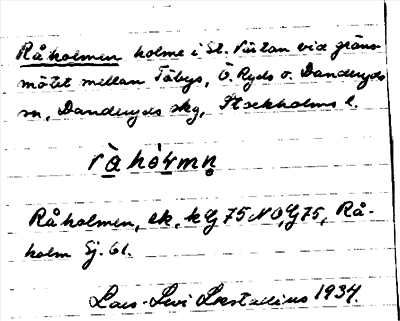 Råholmen holme i St. Värtan vid gräns-
mötet mellan Täbys, Ö. Ryds o. Danderyds
sn, Danderyds skg, Stockholms l.
råhòɫmn̥
Råholmen, ek. k Ij 75 NO, Ij 75, Rå-
holm Sj. 61.
Lars-Levi Læstadius 1934.